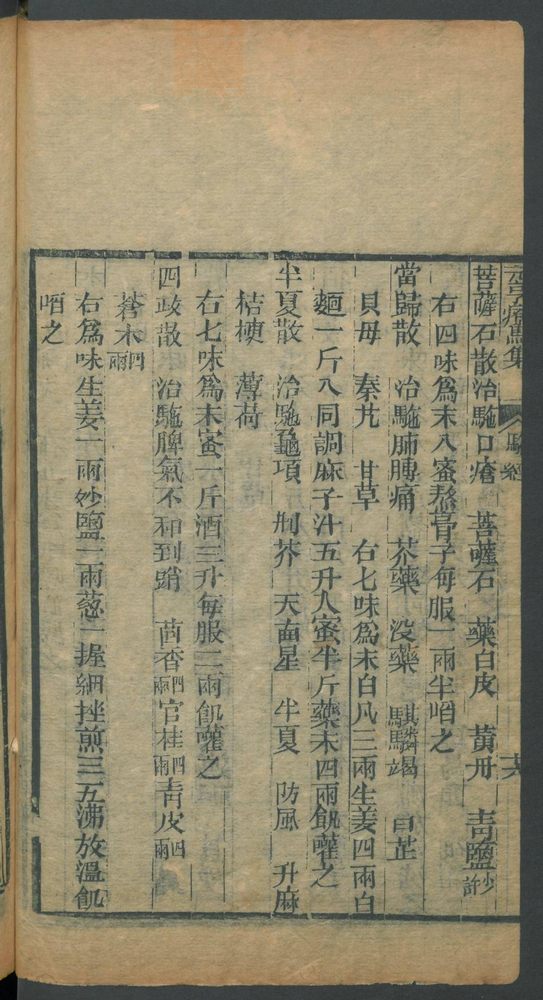 元亨療馬集 駝經 十六
菩薩石散治駞口瘡 菩薩石 藥白皮 黃丹 青鹽 少許
右四味爲末入蜜熬膏子每服一兩半啗之
當歸散 治駞肺膊痛 芥藥 沒藥 騏驎竭 白芷
貝母 秦艽 甘草 右七味爲末白凡三兩生姜四兩白
麵一斤入同調麻子汁五升人蜜半斤藥末四兩飢嚾之
半夏散 治駞龜項 荆芥 天南星 半夏 防風 升麻
桔梗 薄荷
右七味爲末蜜一斤酒三升每服二兩飢嚾之
四歧散 治駞脾氣不和到蹄 茴香四兩官桂四兩青皮四兩
蒼术四兩
右爲味生姜一兩炒鹽二兩葱一握細挫煎三五沸放溫飢
啗之